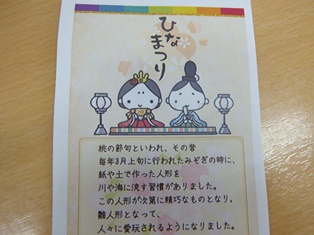 ひなまつり
桃の節句といわれ、その昔
毎年3月上旬に行われたみそぎの時に、
紙や土で作った人形を
川や海に流す習慣がありました。
この人形が次第に精巧なものとなり、
雛人形となって、
人々に愛玩されるようになりました。